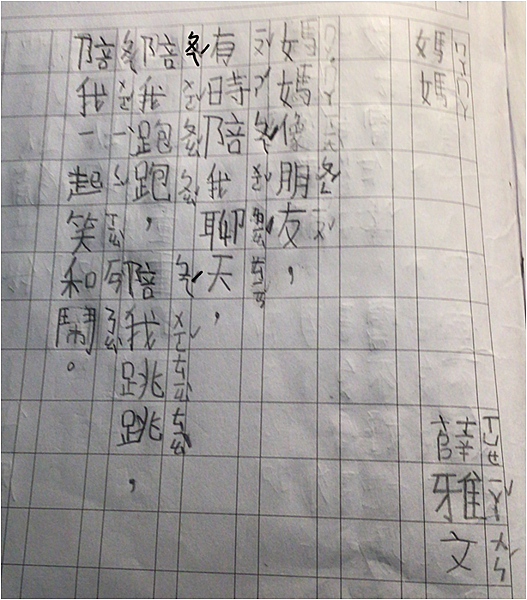 媽媽 薛雅文
媽媽像朋友，
有時陪我聊天，
陪我跑跑，陪我跳跳，
陪我一起笑和鬧。